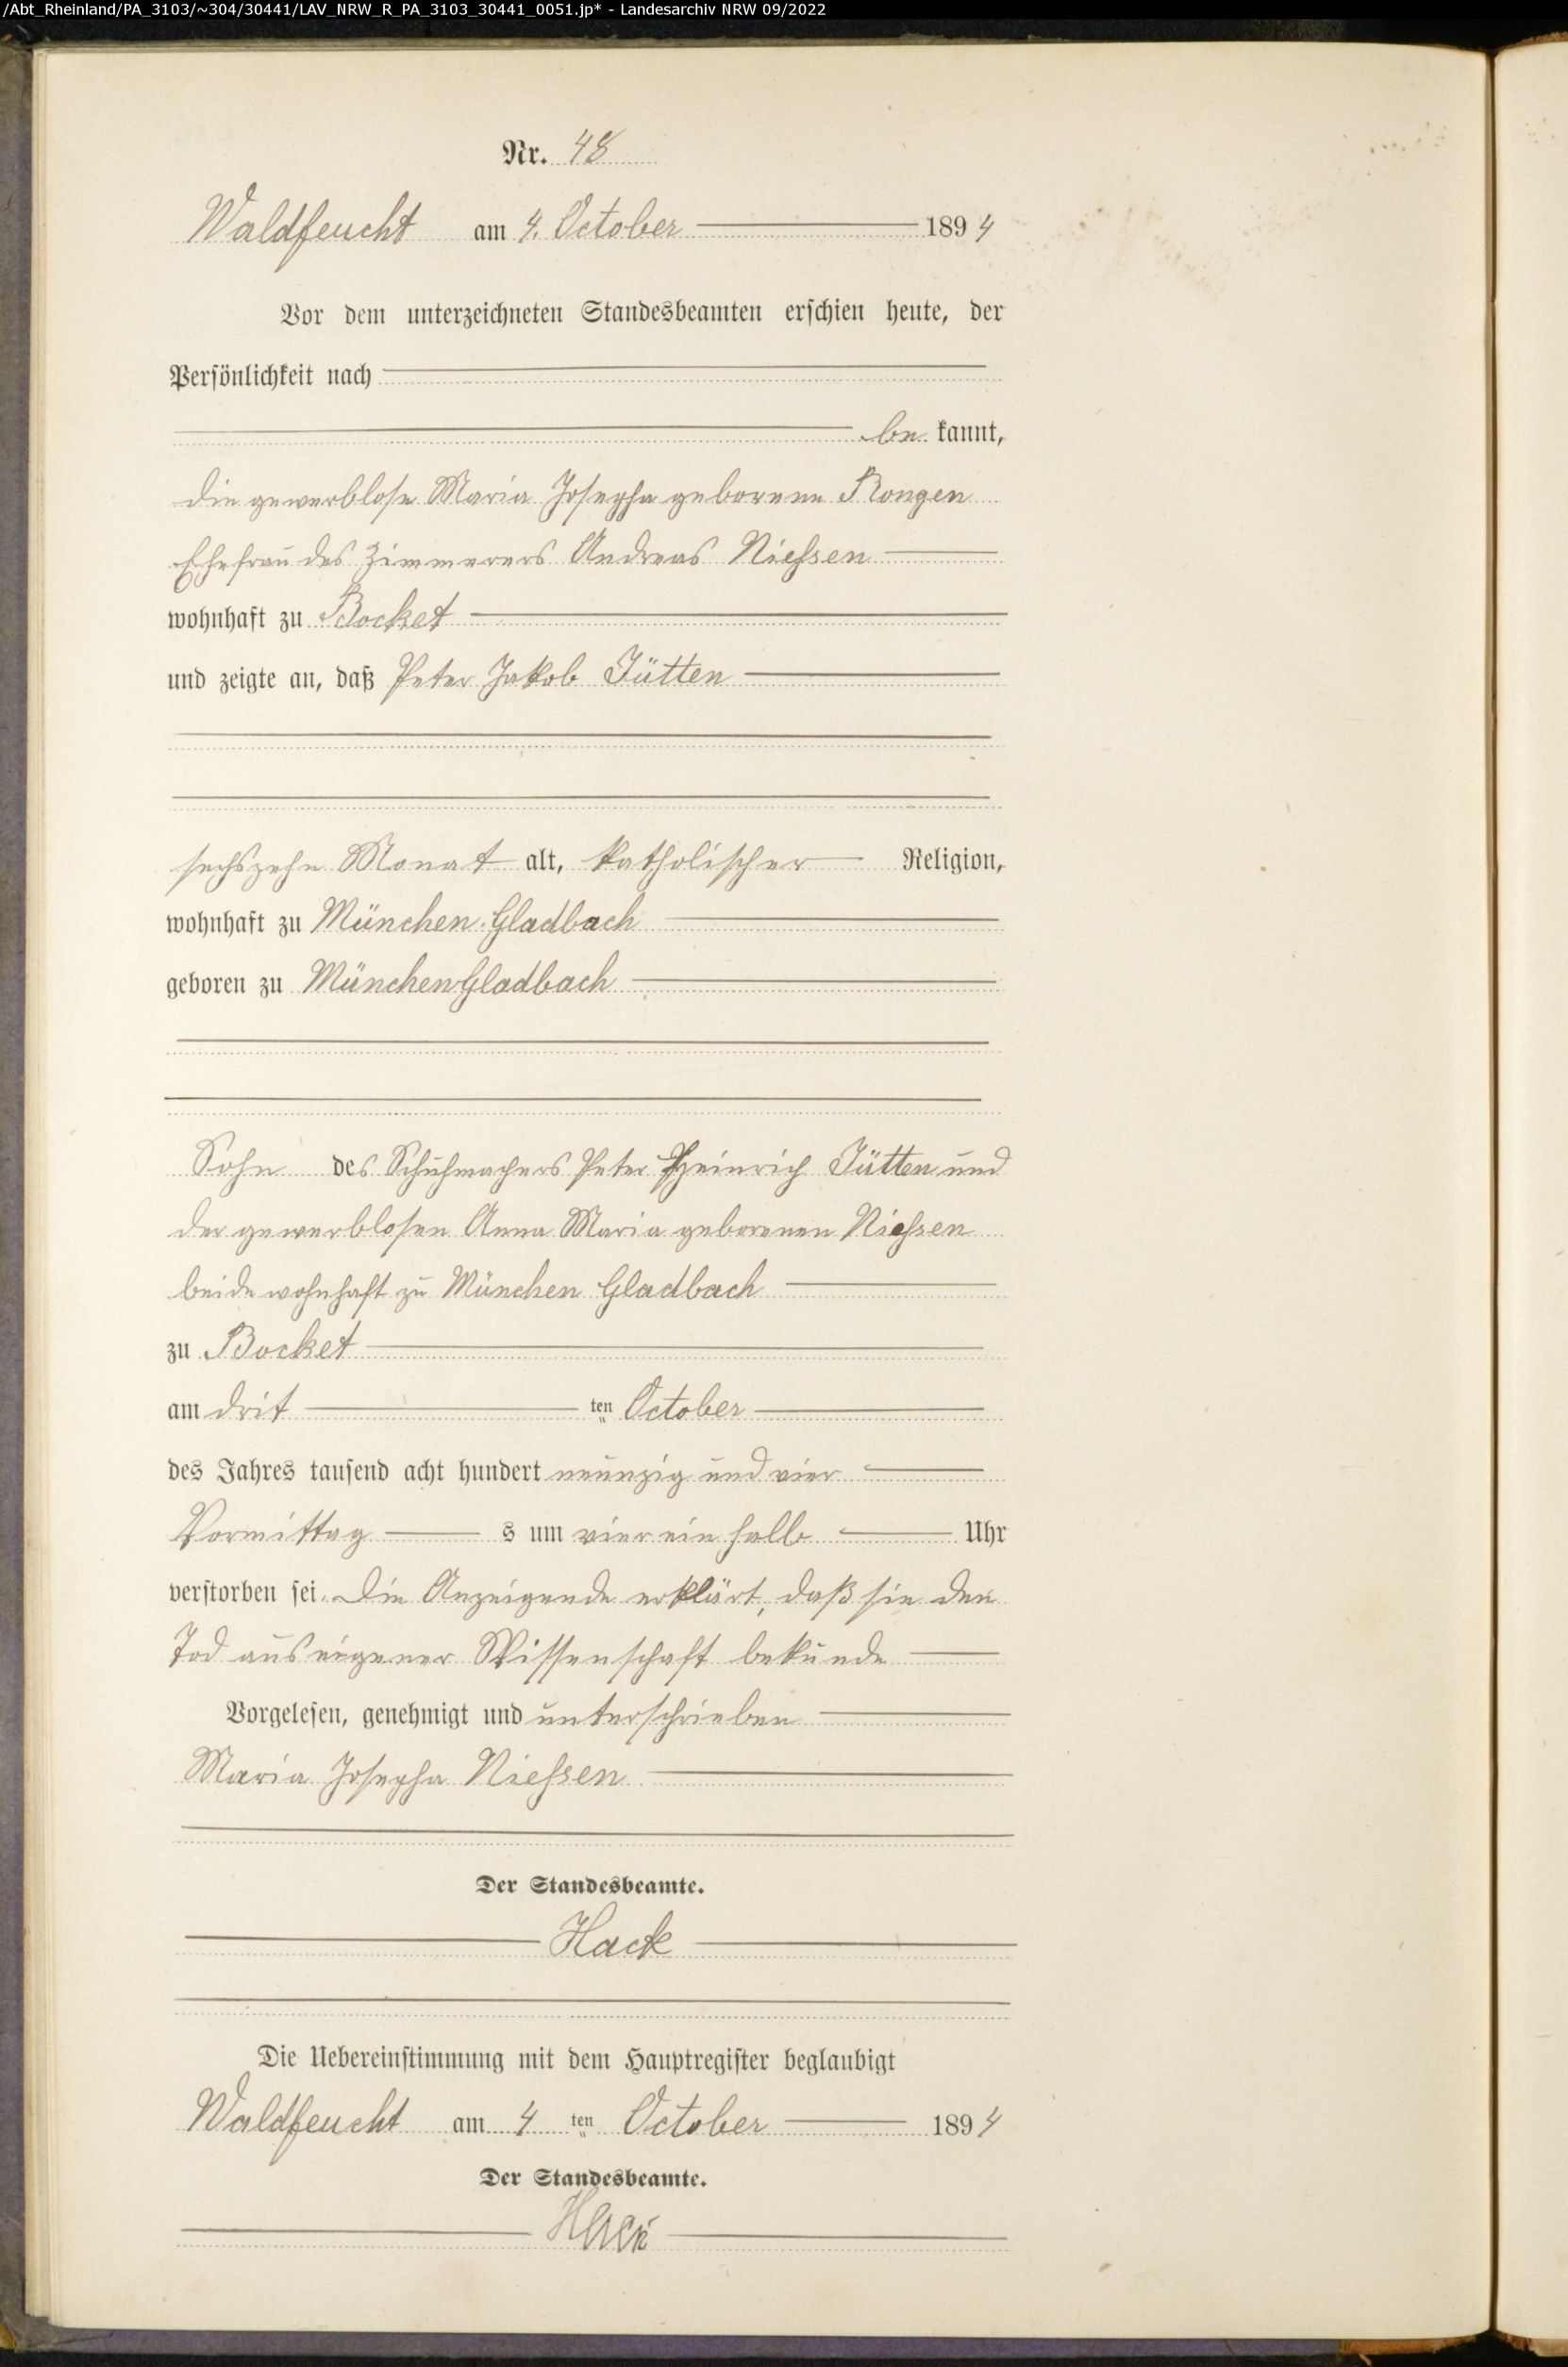 /Abt_Rheinland/PA_3103/~304/30441/LAV_NRW_R_PA_3103_30441_0051.jp* - Landesarchiv NRW 09/2022
Nr. 48
Waldfeucht am 4. October 1894
Vor dem unterzeichneten Standesbeamten erschien heute, der
Persönlichkeit nach
be kannt,
die gewerblose Maria Josepha geborene Rongen
Ehefrau des Zimmerers Andreas Nießen
wohnhaft zu Bocket
und zeigte an, daß Peter Jakob Jütten
sechszehn Monat alt, katholischer Religion,
wohnhaft zu München-Gladbach
geboren zu München Gladbach
Sohn des Schuhmachers Peter Heinrich Jütten und
der gewerblosen Anna Maria geborenen Nießen
beide wohnhaft zu München Gladbach
zu Bocket
am drit ten October
des Jahres tausend acht hundert neunzig und vier
Vormittag s um vier ein halb Uhr
verstorben sei. Die Anzeigende erklärt, daß sie den
Tod aus eigener Wissenschaft bekunde
Vorgelesen, genehmigt und unterschrieben
Maria Josepha Nießen
Der Standesbeamte.
Hack
Die Uebereinstimmung mit dem Hauptregister beglaubigt
Waldfeucht am 4 ten October 1894
Der Standesbeamte.
Hack